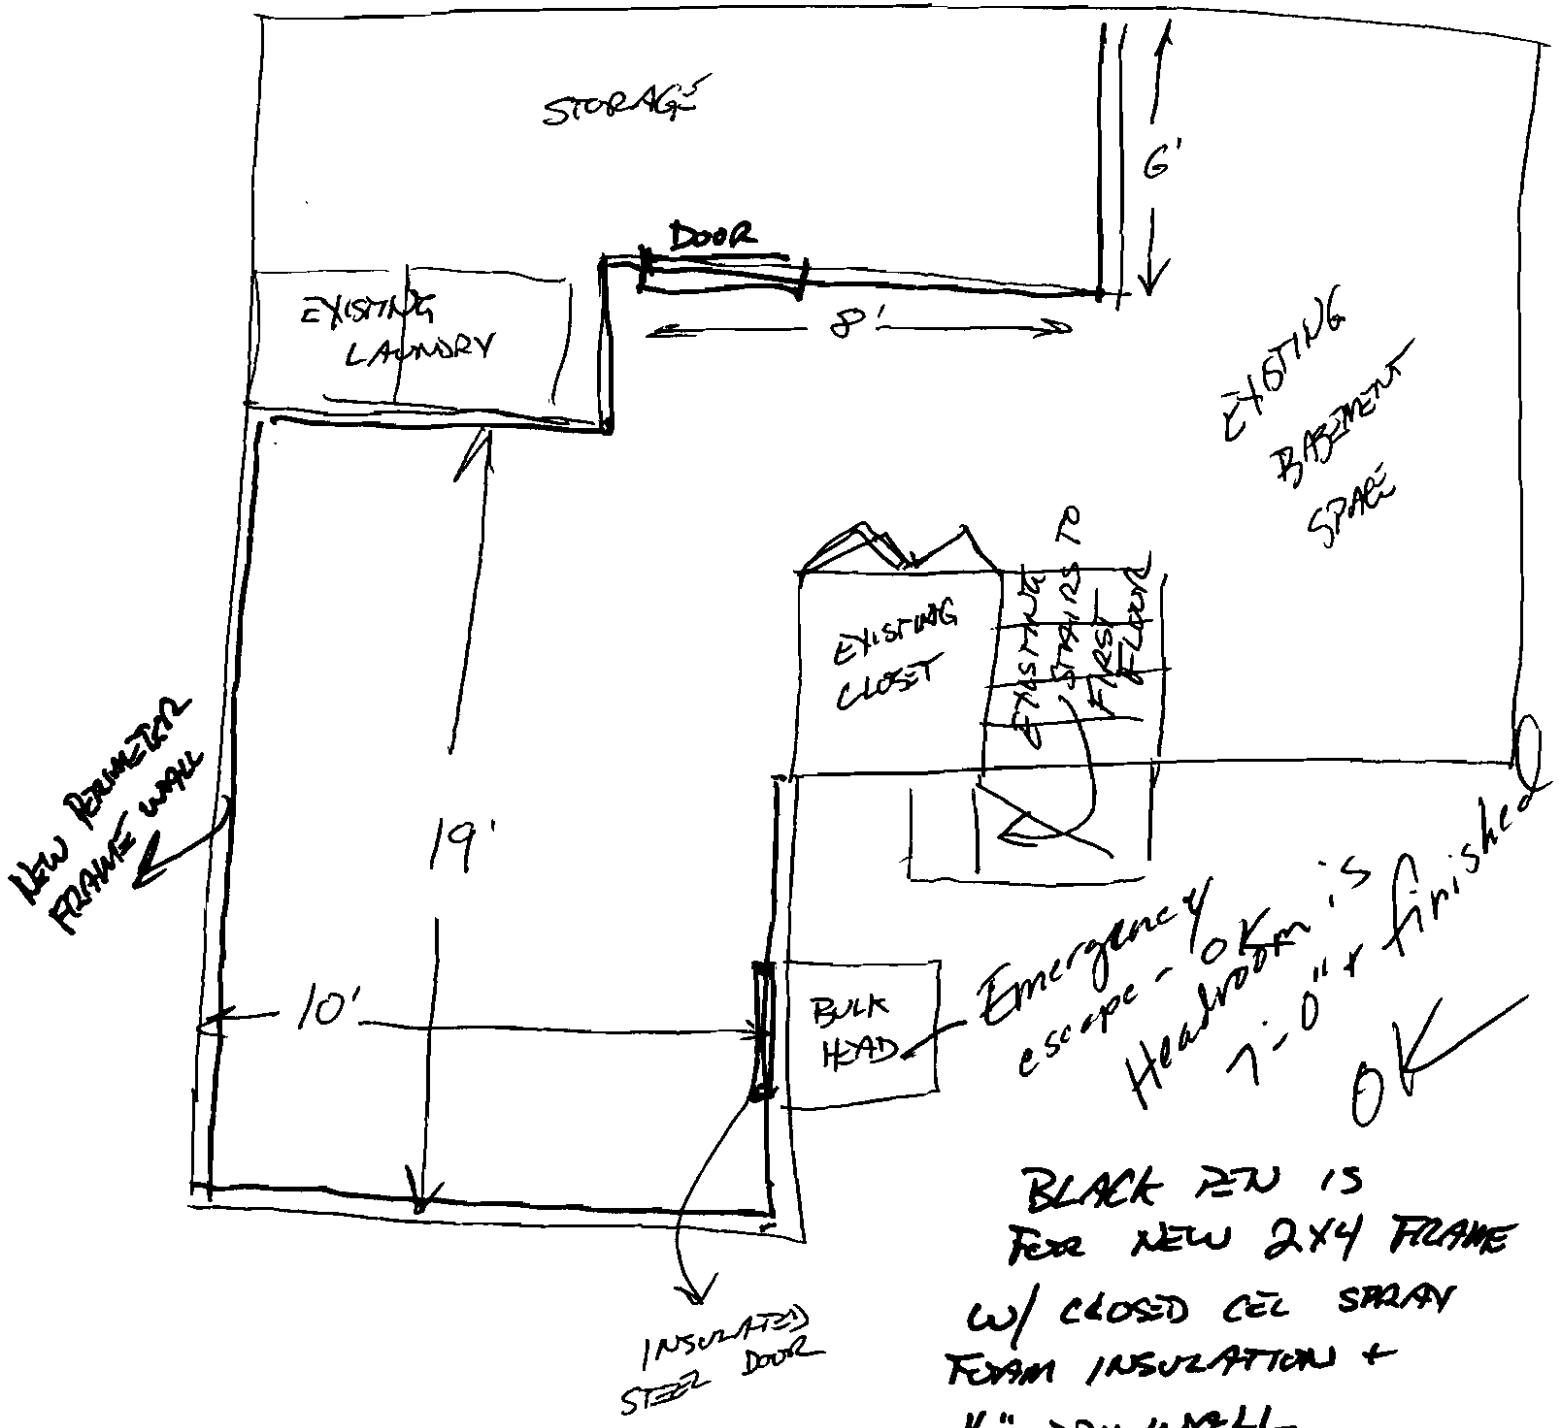 STORAGE
6'
DOOR
8'
EXISTING
LAUNDRY
EXISTING
BASEMENT
SPACE
EXISTING
CLOSET
EXISTING
STAIRS TO
FIRST
FLOOR
NEW PERIMETER
FRAME WALL
19'
10'
BULK
HEAD
Emergency
escape - OK
Headroom is
7'-0"+ finished
OK
INSULATED
STEEL DOOR
BLACK PEN IS
FOR NEW 2X4 FRAME
W/ CLOSED CEL SPRAY
FOAM INSULATION +
DRYWALL